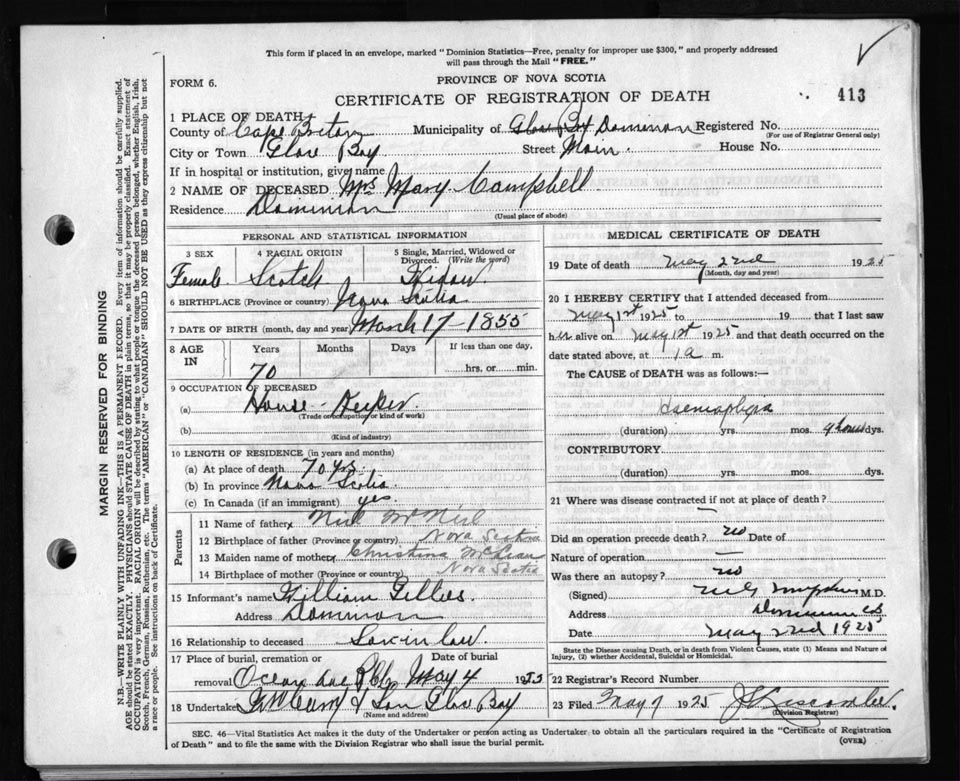 This form if placed in an envelope, marked "Dominion Statistics—Free, penalty for improper use $300," and properly addressed
will pass through the Mail "FREE."
FORM 6.
PROVINCE OF NOVA SCOTIA
CERTIFICATE OF REGISTRATION OF DEATH
413
1 PLACE OF DEATH
County of Cape Breton Municipality of Glace Bay Dominion Registered No.
(For use of Registrar General only)
City or Town Glace Bay Street Main. House No.
If in hospital or institution, give name
2 NAME OF DECEASED Mrs Mary Campbell
Residence Dominion
(Usual place of abode)
PERSONAL AND STATISTICAL INFORMATION
3 SEX 4 RACIAL ORIGIN 5 Single, Married, Widowed or Divorced. (Write the word)
Female Scotch Widow
6 BIRTHPLACE (Province or country) Nova Scotia
7 DATE OF BIRTH (month, day and year) March 17-1855
8 AGE IN Years Months Days If less than one day,
70 hrs. or min.
9 OCCUPATION OF DECEASED
(a) House-Keeper
(Trade occupation or kind of work)
(b)
(Kind of industry)
10 LENGTH OF RESIDENCE (in years and months)
(a) At place of death 70 yrs.
(b) In province Nova Scotia
(c) In Canada (if an immigrant) yes.
Parents
11 Name of father Neil McNeil
12 Birthplace of father (Province or country) Nova Scotia
13 Maiden name of mother Christina McLean
14 Birthplace of mother (Province or country) Nova Scotia
15 Informant's name William Gillies
Address Dominion
16 Relationship to deceased Son in law
17 Place of burial, cremation or removal Date of burial
May 4 19
18 Undertaker & Son Glace Bay
(Name and address)
MEDICAL CERTIFICATE OF DEATH
19 Date of death May 22nd 1925
(Month, day and year)
20 I HEREBY CERTIFY that I attended deceased from
May 1st 1925 to 19 that I last saw
her alive on May 1st 1925 and that death occurred on the
date stated above, at 1 a m.
The CAUSE of DEATH was as follows:—
(duration) yrs. mos. dys.
CONTRIBUTORY
(duration) yrs. mos. dys.
21 Where was disease contracted if not at place of death?
—
Did an operation precede death? no Date of
Nature of operation —
Was there an autopsy? no
(Signed) M.D.
Address Dominion CB
Date May 22nd 1925
State the Disease causing Death, or in death from Violent Causes, state (1) Means and Nature of
Injury, (2) whether Accidental, Suicidal or Homicidal.
22 Registrar's Record Number
23 Filed May 7 1925
(Division Registrar)
SEC. 46—Vital Statistics Act makes it the duty of the Undertaker or person acting as Undertaker to obtain all the particulars required in the "Certificate of Registration
of Death" and to file the same with the Division Registrar who shall issue the burial permit.
(OVER)
MARGIN RESERVED FOR BINDING
N.B.—WRITE PLAINLY WITH UNFADING INK—THIS IS A PERMANENT RECORD. Every item of information should be carefully supplied.
AGE should be stated EXACTLY. PHYSICIANS should STATE CAUSE OF DEATH in plain terms, so that it may be properly classified. Exact statement of
OCCUPATION is very important. RACIAL ORIGIN will be described by stating to what people or tongue the deceased person belonged, whether English, Irish,
Scotch, French, German, Russian, Ruthenian, etc. The terms "AMERICAN" or "CANADIAN" SHOULD NOT BE USED as they express citizenship but not
a race or people. See instructions on back of Certificate.